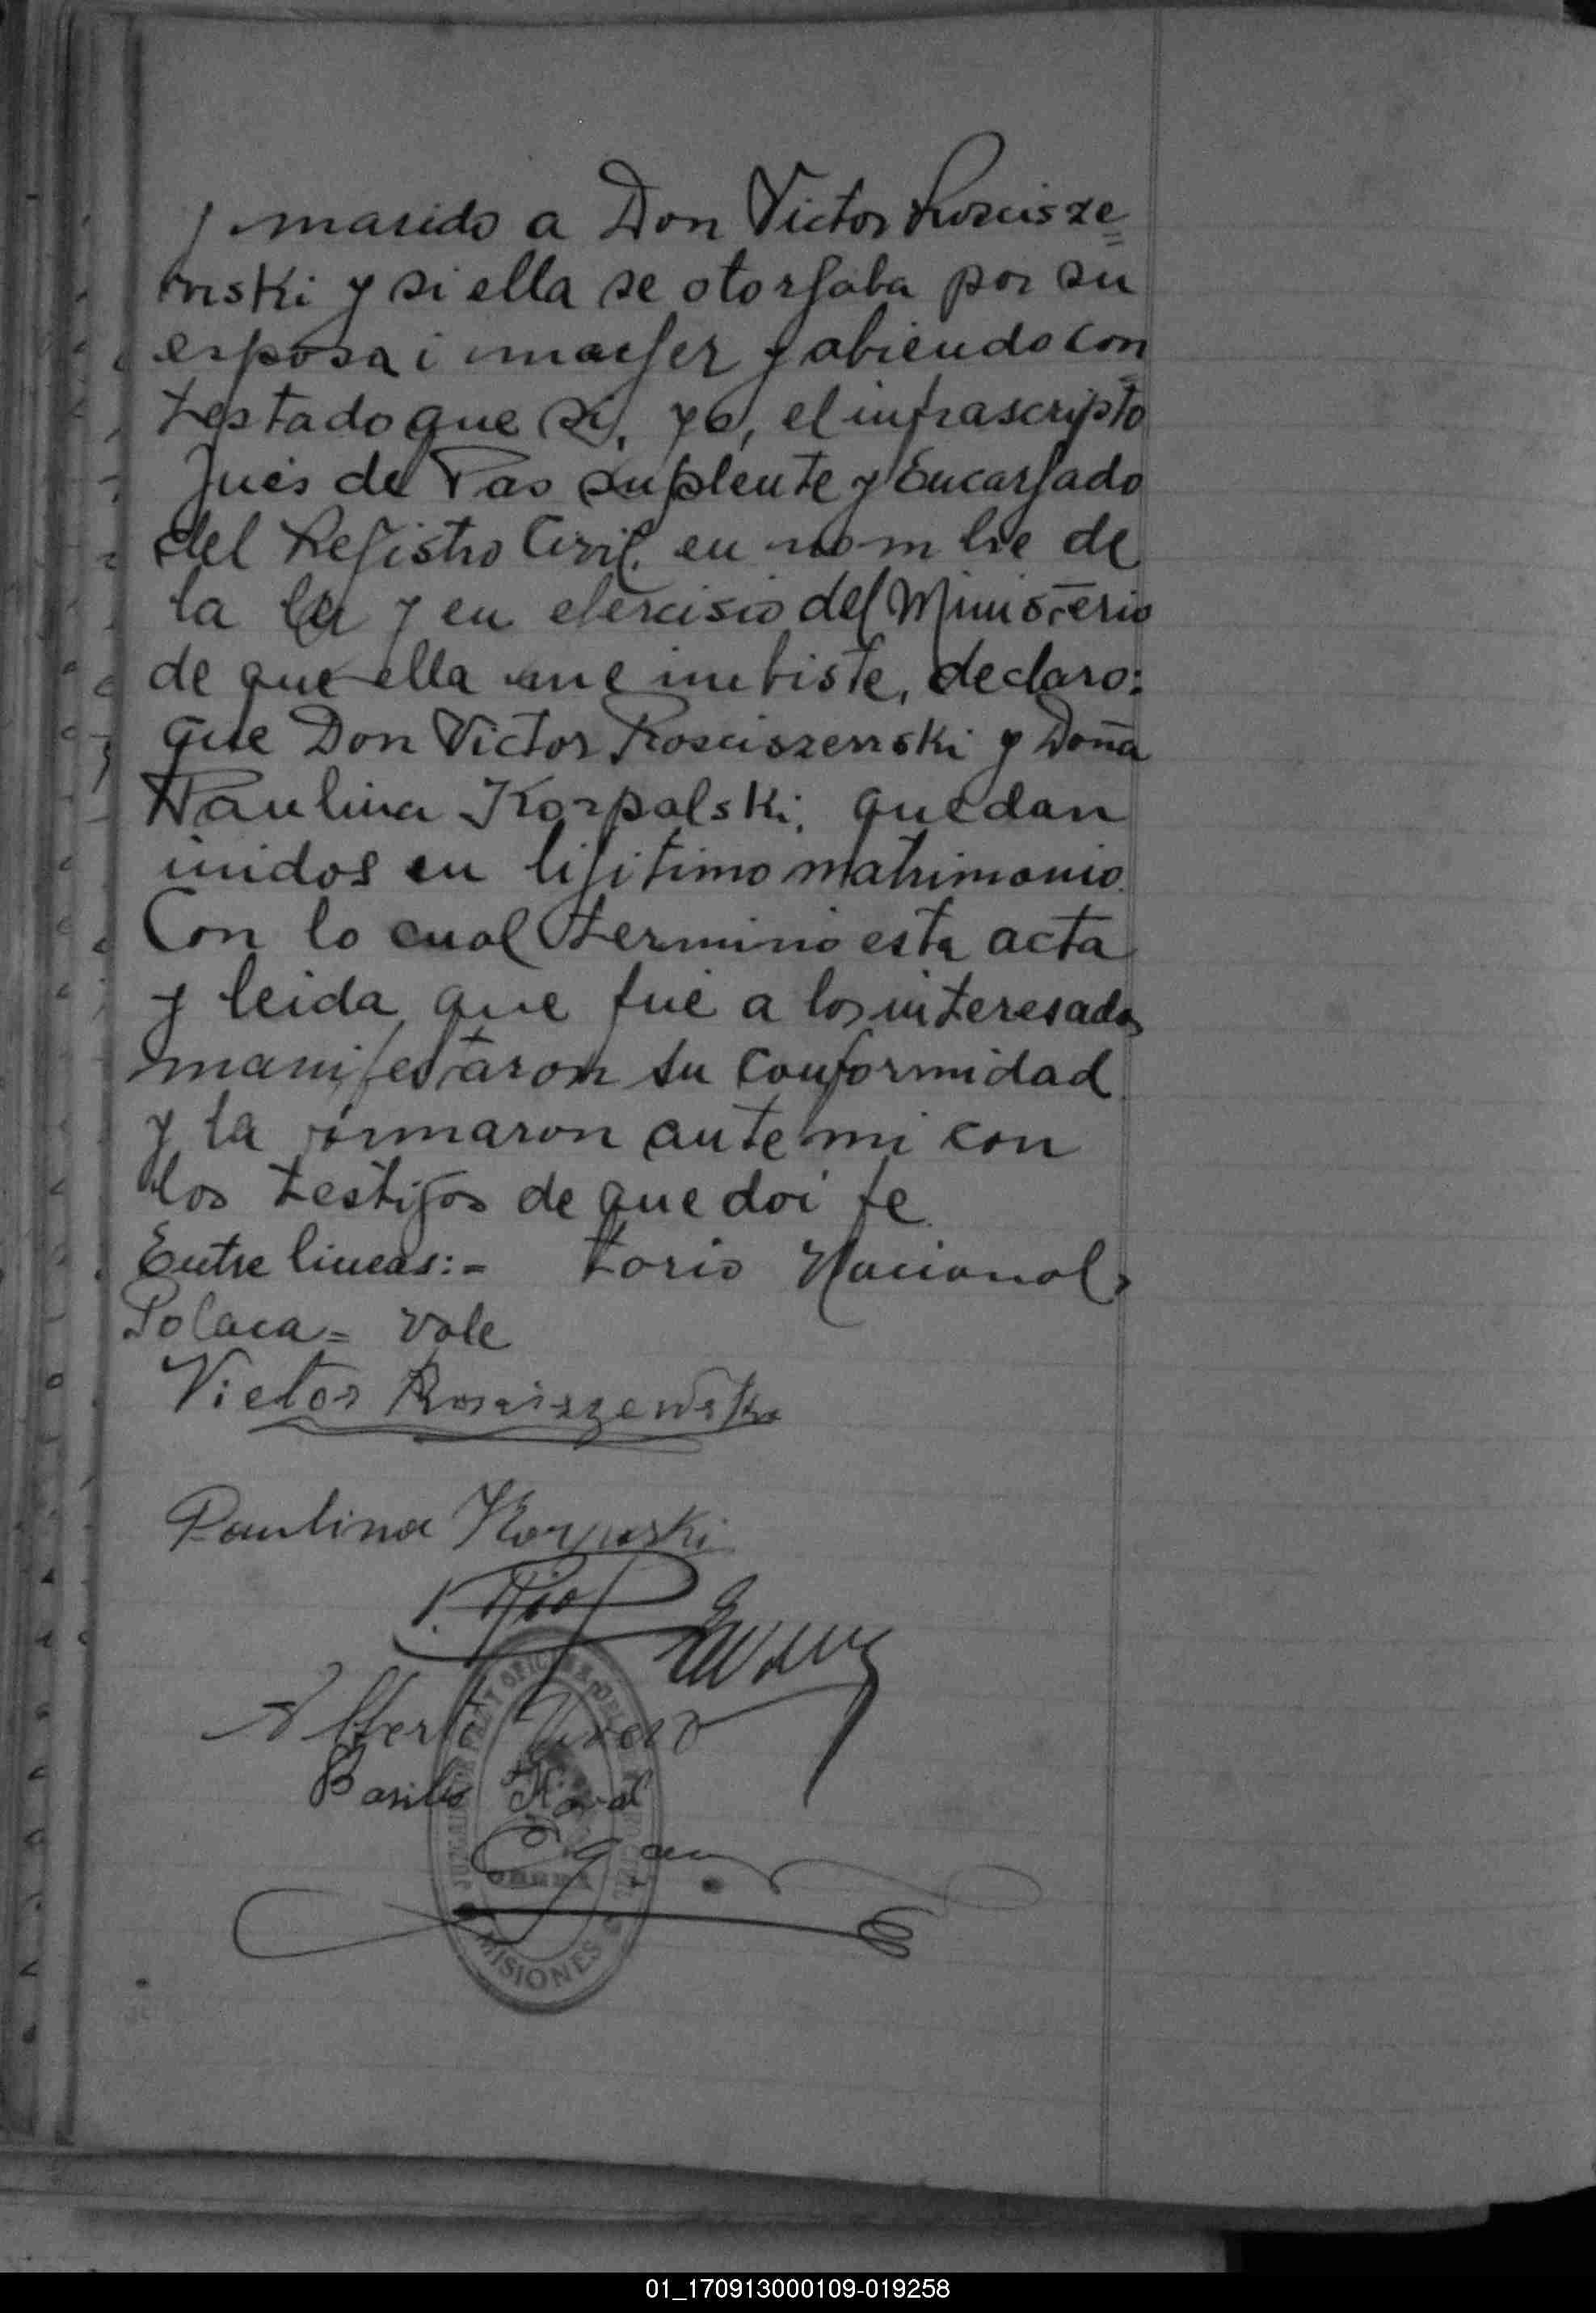 y marido a Don Victor Roscisze=
wski y si ella se otorgaba por su
esposa i mujer y abiendo con=
testado que si, yo, el infrascripto
Jues de Pas suplente y Encargado
del Registro Civil, en nombre de
la ley y en ejercisio del Ministerio
de que ella me inbiste, declaro:
que Don Victor Rosciszewski y Doña
Paulina Korpalski, quedan
unidos en lijitimo matrimonio.
Con lo cual termino esta acta
y leida que fué a los interesados
manifestaron su conformidad
y la firmaron ante mi con
los testigos de que doi fe.
Entre lineas:= torio Nacional,
Polaca= vale
Victor Rosciszewski
Paulina
Alberto
Basilio Koval
MISIONES
01_170913000109-019258